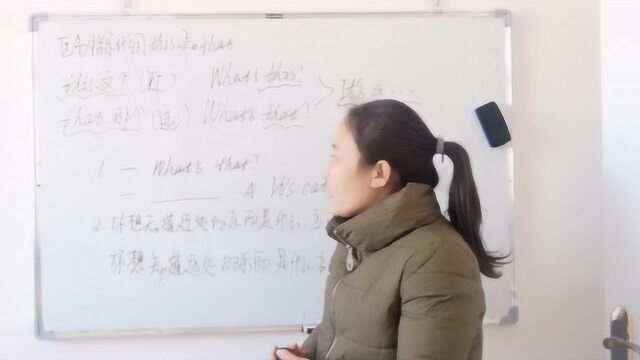 区分指示代词 this 和 that
this 这个 (近) What's this?
that 那个 (远) What's that? It's a ...
1. — What's that?
— A. It's cat
2. 你想知道远处的东西是什么,
你想知道远处的东西是什么,